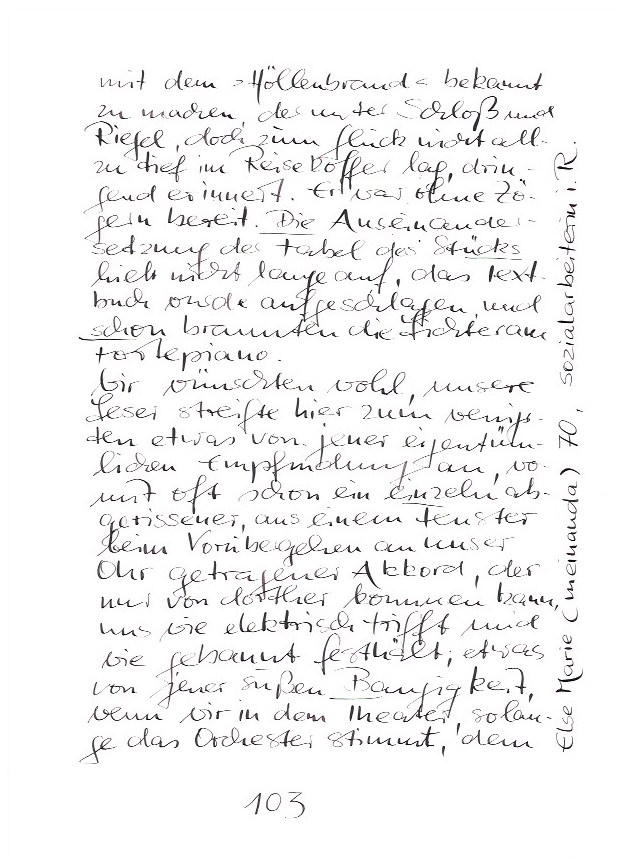 mit dem »Höllenbrand« bekannt
zu machen, der unter Schloß und
Riegel, doch zum Glück nicht all-
zu tief im Reisekoffer lag, drin-
gend erinnert. Er war ohne Zö-
gern bereit. Die Auseinander-
setzung der Fabel des Stücks
hielt nicht lange auf, das Text-
buch wurde aufgeschlagen und
schon brannten die Lichter am
Fortepiano.
Wir wünschten wohl, unsere
Leser streifte hier zum wenigs-
ten etwas von jener eigentüm-
lichen Empfindung an, wo-
mit oft schon ein einzeln ab-
gerissener, aus einem Fenster
beim Vorübergehen an unser
Ohr getragener Akkord, der
nur von dorther kommen kann,
uns wie elektrisch trifft und
wie gebannt festhält; etwas
von jener süßen Bangigkeit,
wenn wir in dem Theater, solan-
ge das Orchester stimmt, dem
Else Marie (Uneinanda) 70, Sozialarbeiterin i. R.
103